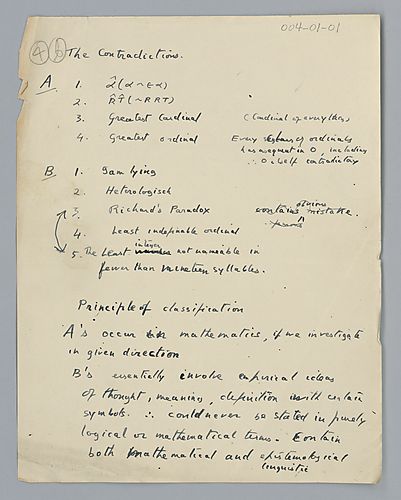 004-01-01
4 6 The Contradictions.
A 1. α̂(α ~ ∈ α)
2. R̂T̂(~RRT)
3. Greatest Cardinal (Cardinal of everything)
4. Greatest ordinal Every series of ordinals
has a sequent in O, including
∴ O is self contradictory
B. 1. I am lying
2. Heterologisch
3. Richard's Paradox contains obvious mistake.
4. Least indefinable ordinal
5. The Least integer not nameable in
fewer than nineteen syllables.
Principle of classification
A's occur in mathematics, if we investigate
in given direction
B's essentially involve empirical ideas
of thought, meaning, definition with certain
symbols. ∴ could never be stated in purely
logical or mathematical terms. Contain
both mathematical and epistemological
linguistic